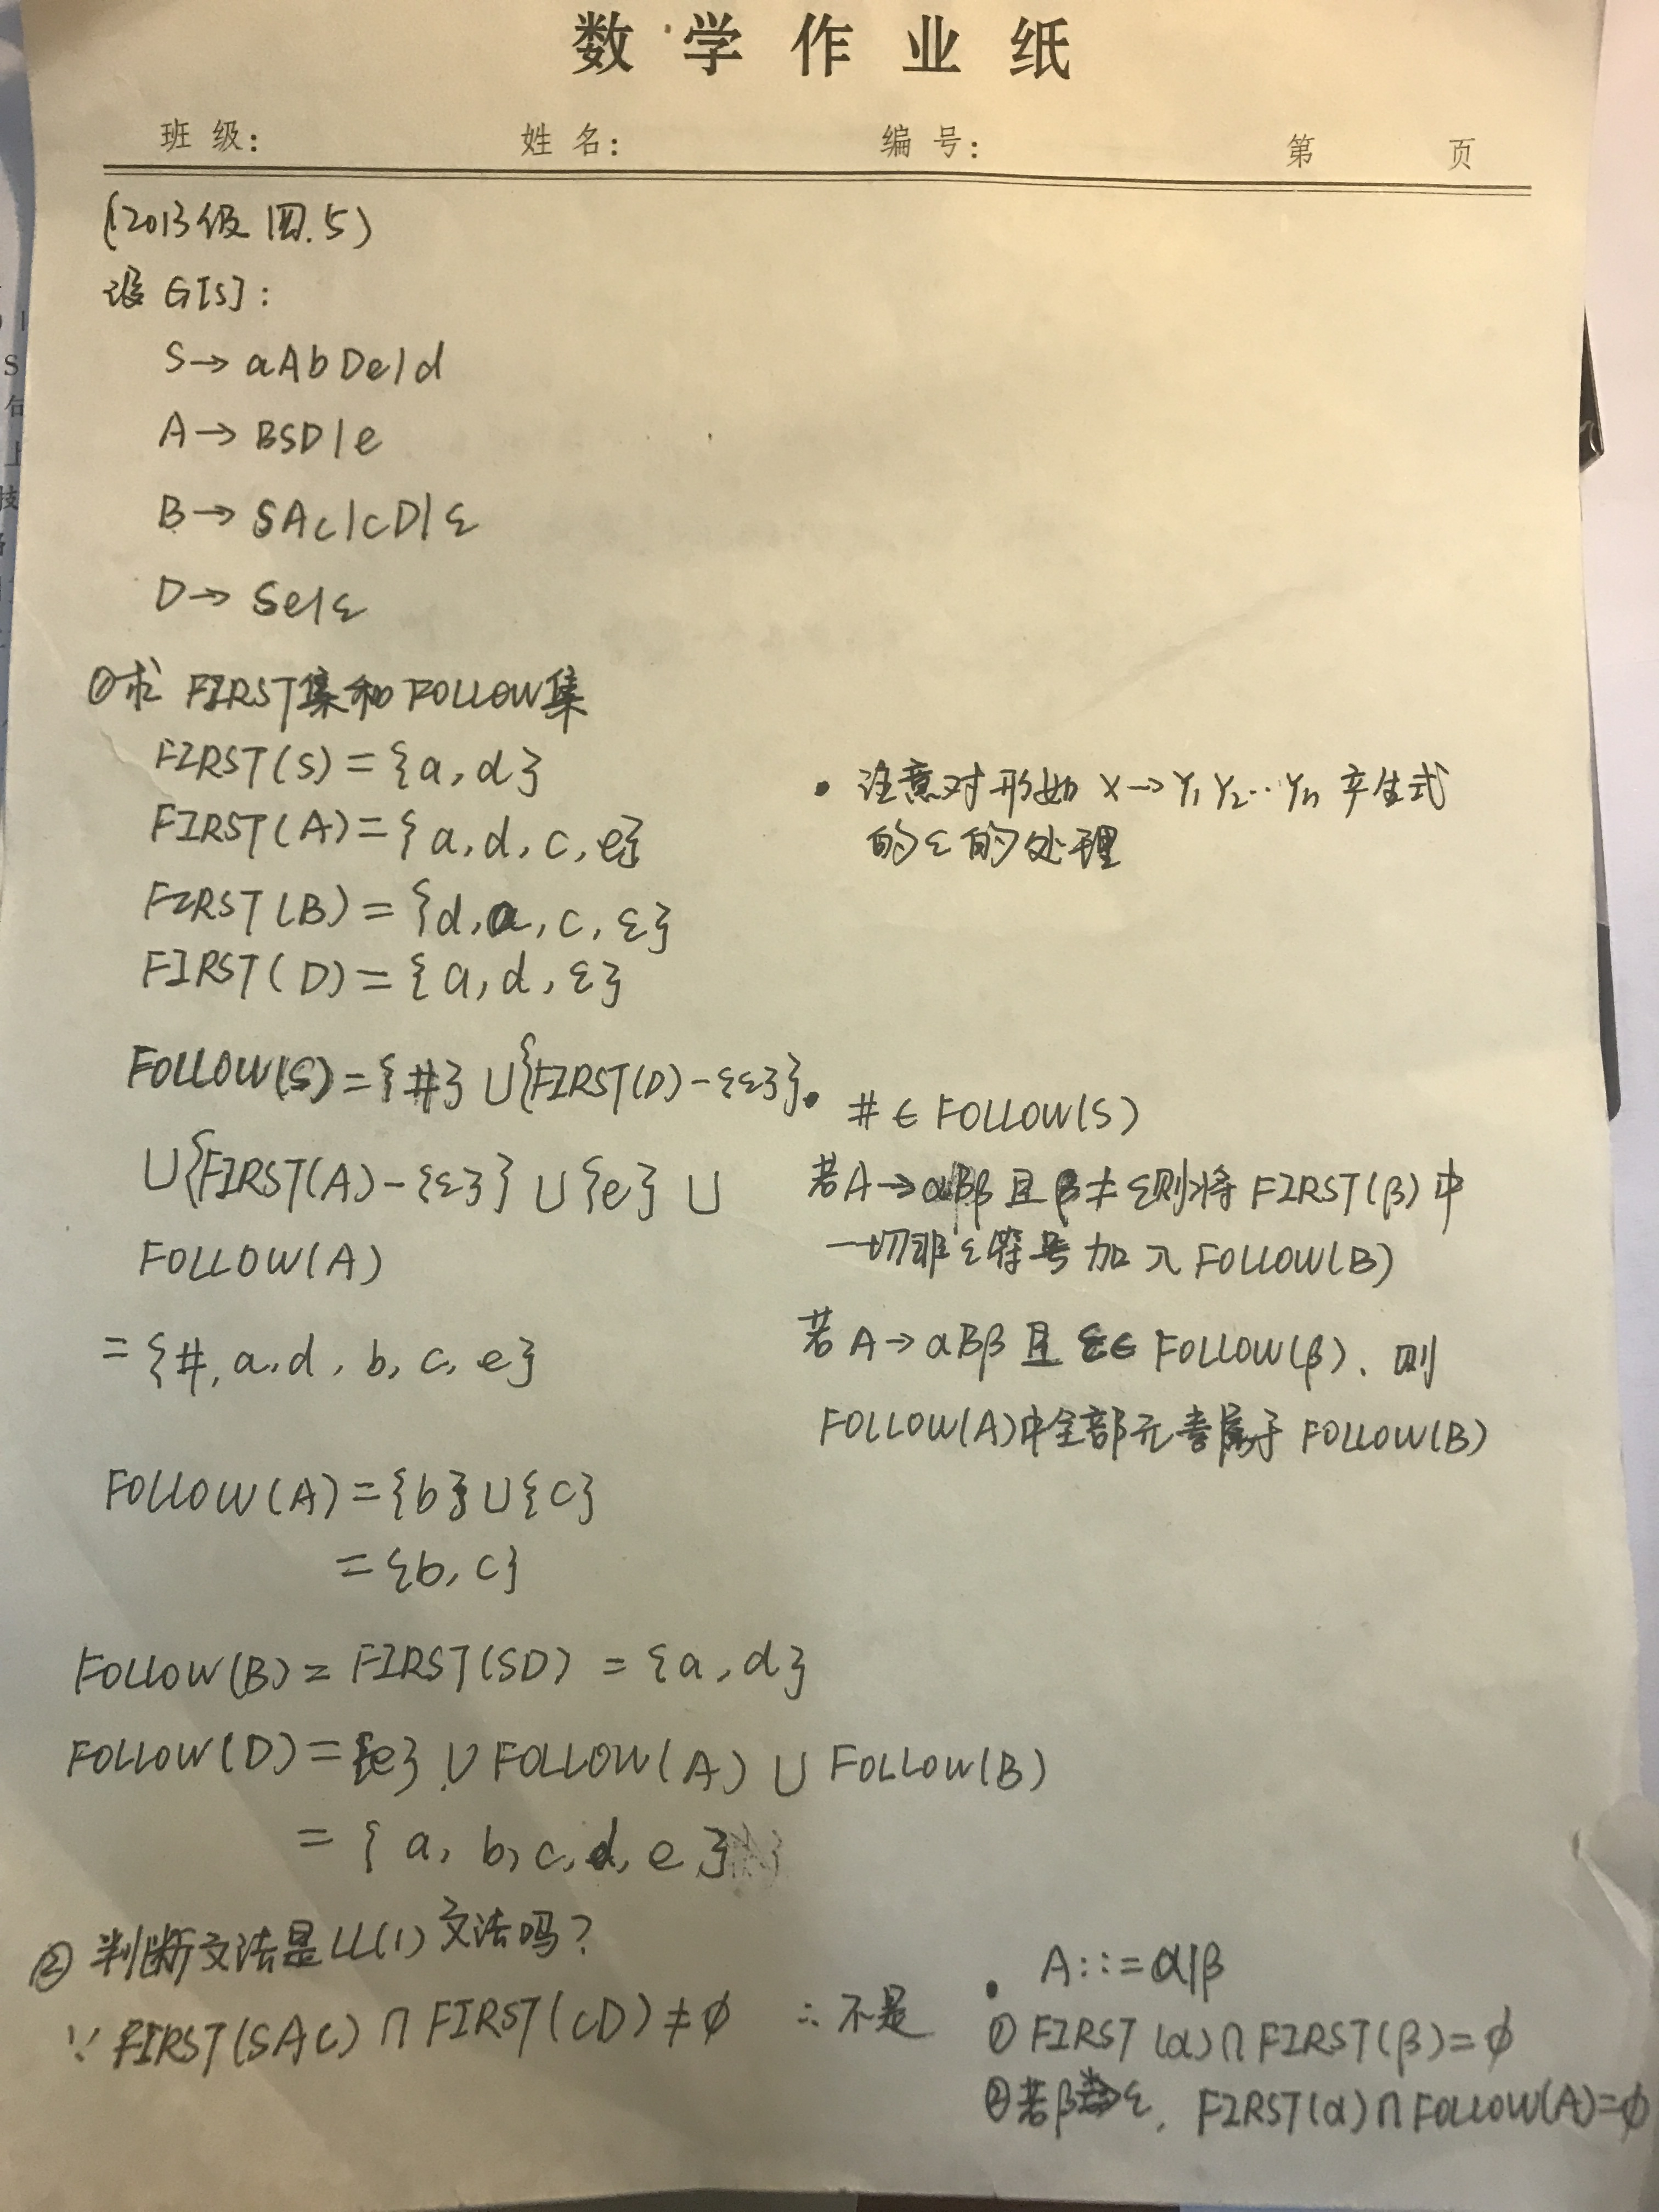 数学作业纸
班级: 姓名: 编号: 第 页
(2013级 四.5)
设 G[S]:
S→aAbDe|d
A→BSD|e
B→SAc|cD|ε
D→Se|ε
①求 FIRST集和FOLLOW集
FIRST(S)={a,d}
FIRST(A)={a,d,c,e}
FIRST(B)={d,a,c,ε}
FIRST(D)={a,d,ε}
• 注意对形如 X→Y₁Y₂…Yn 产生式
的ε的处理
FOLLOW(S)={#}∪{FIRST(D)-{ε}}
∪{FIRST(A)-{ε}}∪{e}∪
FOLLOW(A)
={#,a,d,b,c,e}
• #∈FOLLOW(S)
若A→αBβ且β≠ε则将FIRST(β)中
一切非ε符号加入FOLLOW(B)
若A→αBβ且ε∈FOLLOW(β),则
FOLLOW(A)中全部元素属于FOLLOW(B)
FOLLOW(A)={b}∪{c}
={b,c}
FOLLOW(B)=FIRST(SD)={a,d}
FOLLOW(D)={e}∪FOLLOW(A)∪FOLLOW(B)
={a,b,c,d,e}
②判断文法是LL(1)文法吗?
∵FIRST(SAc)∩FIRST(cD)≠∅ ∴不是
• A::=α|β
①FIRST(α)∩FIRST(β)=∅
②若β⇒ε, FIRST(α)∩FOLLOW(A)=∅